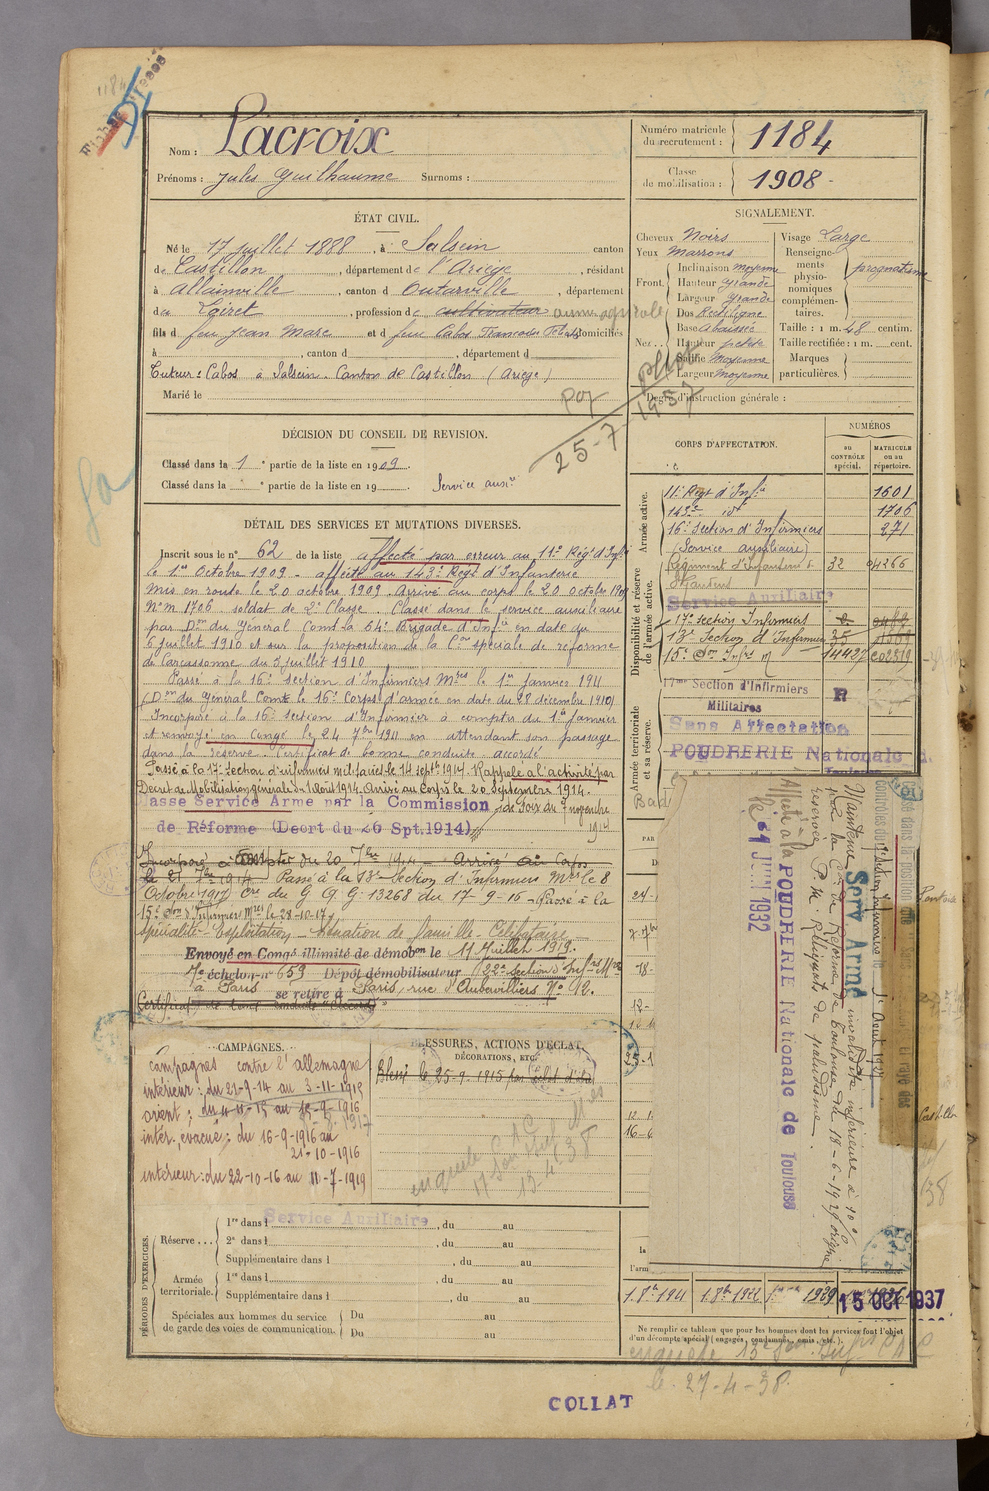 1184
Nom : Lacroix
Prénoms : Jules Guilhaume Surnoms :
Numéro matricule du recrutement : 1184
Classe de mobilisation : 1908
ÉTAT CIVIL.
Né le 17 juillet 1888, à Salsein canton
de Castillon, département de l'Ariège, résidant
à Allainville, canton d Outarville, département
du Loiret, profession de cultivateur
fils d feu Jean Marc et d feu Cabos domiciliés
à , canton d , département d
Tuteur : Cabos à Salsein. Canton de Castillon (Ariège)
Marié le
SIGNALEMENT.
Cheveux Noirs
Yeux Marrons
Front. Inclinaison moyenne
Hauteur grande
Largeur grande
Nez.. Dos Rectiligne
Base Abaissée
Hauteur petite
Saillie Moyenne
Largeur Moyenne
Visage Large
Renseignements physionomiques complémentaires.
Taille : 1 m. 48 centim.
Taille rectifiée : 1 m. cent.
Marques particulières.
Degré d'instruction générale :
25-7-1957
DÉCISION DU CONSEIL DE REVISION.
Classé dans la 1e partie de la liste en 1909.
Classé dans la e partie de la liste en 19 . Service auxre
DÉTAIL DES SERVICES ET MUTATIONS DIVERSES.
Inscrit sous le n° 62 de la liste affecté par erreur au 11e Régt d'Infie
le 1er Octobre 1909 - affecté au 143e Régt d'Infanterie
Mis en route le 20 octobre 1909. Arrivé au corps le 20 Octobre 1909
N° M 1706 soldat de 2e Classe. Classé dans le service auxiliaire
par Don du Général Comdt la 64e Brigade d'Infie en date du
6 juillet 1910 et sur la proposition de la Con spéciale de réforme
de Carcassonne du 5 juillet 1910
Passé à la 16e section d'Infirmiers Mres le 1er Janvier 1911
(Don du Général Comdt le 16e Corps d'armée en date du 28 décembre 1910)
Incorporé à la 16e section d'Infirmiers à compter du 1er janvier
et renvoyé en Congé le 24 7bre 1911 en attendant son passage
dans la réserve. Certificat de bonne conduite accordé
Passé à la 17e section d'infirmiers militaires le 14 septe 1914 Rappelé à l'activité par
Décret de Mobilisation générale du 1 Août 1914. Arrivé au Corps le 20 Septembre 1914.
Classé Service Armé par la Commission de Foix du 7 novembre 1914
de Réforme (Décrt du 26 Spt. 1914)
Incorporé à compter du 20 7bre 1914 - Arrivé au Corps
le 21 7bre 1914 Passé à la 13e Section d'Infirmiers Mres le 8
Octobre 1917 Cre du G Q G 13268 du 17-9-16 - Passé à la
15e son d'Infirmiers Mres le 28-10-17
spécialité - Exploitation - Situation de famille - Célibataire
Envoyé en Congé illimité de démobon le 11 Juillet 1919.
7e échelon n° 659 Dépôt démobilisateur 22e section d'Infrs Mres
à Paris se retire à Paris, rue d'Aubervilliers N° 12.
Certificat de bonne conduite "Accordé"
CORPS D'AFFECTATION.
NUMÉROS
au CONTRÔLE spécial.
MATRICULE ou au répertoire.
Armée active.
11e Régt d'Infie 1601
143e id 1706
16e Section d'Infirmiers 271
(Service auxiliaire)
Disponibilité et réserve de l'armée active.
Régiment d'Infanterie 32
Service Auxiliaire
17e Section Infirmiers
13e Section d'Infirmiers 35
15e Son Infrs M 14427
Armée territoriale et sa réserve.
17me Section d'Infirmiers Militaires R
Sans Affectation
POUDRERIE Nationale
Affecté à la POUDRERIE Nationale de Toulouse
le 24 JUIN 1932
Maintenu Serv Armé invalidité inférieure à 10%
par la Con de Réforme de Toulouse du 18-6-1929 origine
réserve P.M. Reliquats de paludisme.
CAMPAGNES.
Campagnes contre l'allemagne
intérieur : du 21-9-14 au 3-11-1915
orient ; du 4-11-15 au 15-9-1916
inter, evacué : du 16-9-1916 au
21-10-1916
intérieur : du 22-10-16 au 11-7-1919
BLESSURES, ACTIONS D'ÉCLAT,
DÉCORATIONS, ETC.
Blessé le 25-9-1915 par éclat d'obus
13-4-38
PÉRIODES D'EXERCICES.
Réserve...
1re dans l Service Auxiliaire, du au
2e dans l , du au
Supplémentaire dans l , du au
Armée territoriale.
1re dans l , du au
Supplémentaire dans l , du au
Spéciales aux hommes du service de garde des voies de communication.
Du au
Du au
1 8bre 1911
1 8bre 1922
15 OCT 1937
Ne remplir ce tableau que pour les hommes dont les services font l'objet
d'un décompte spécial (engagés, condamnés, omis, etc.).
le 27-4-38.
COLLAT